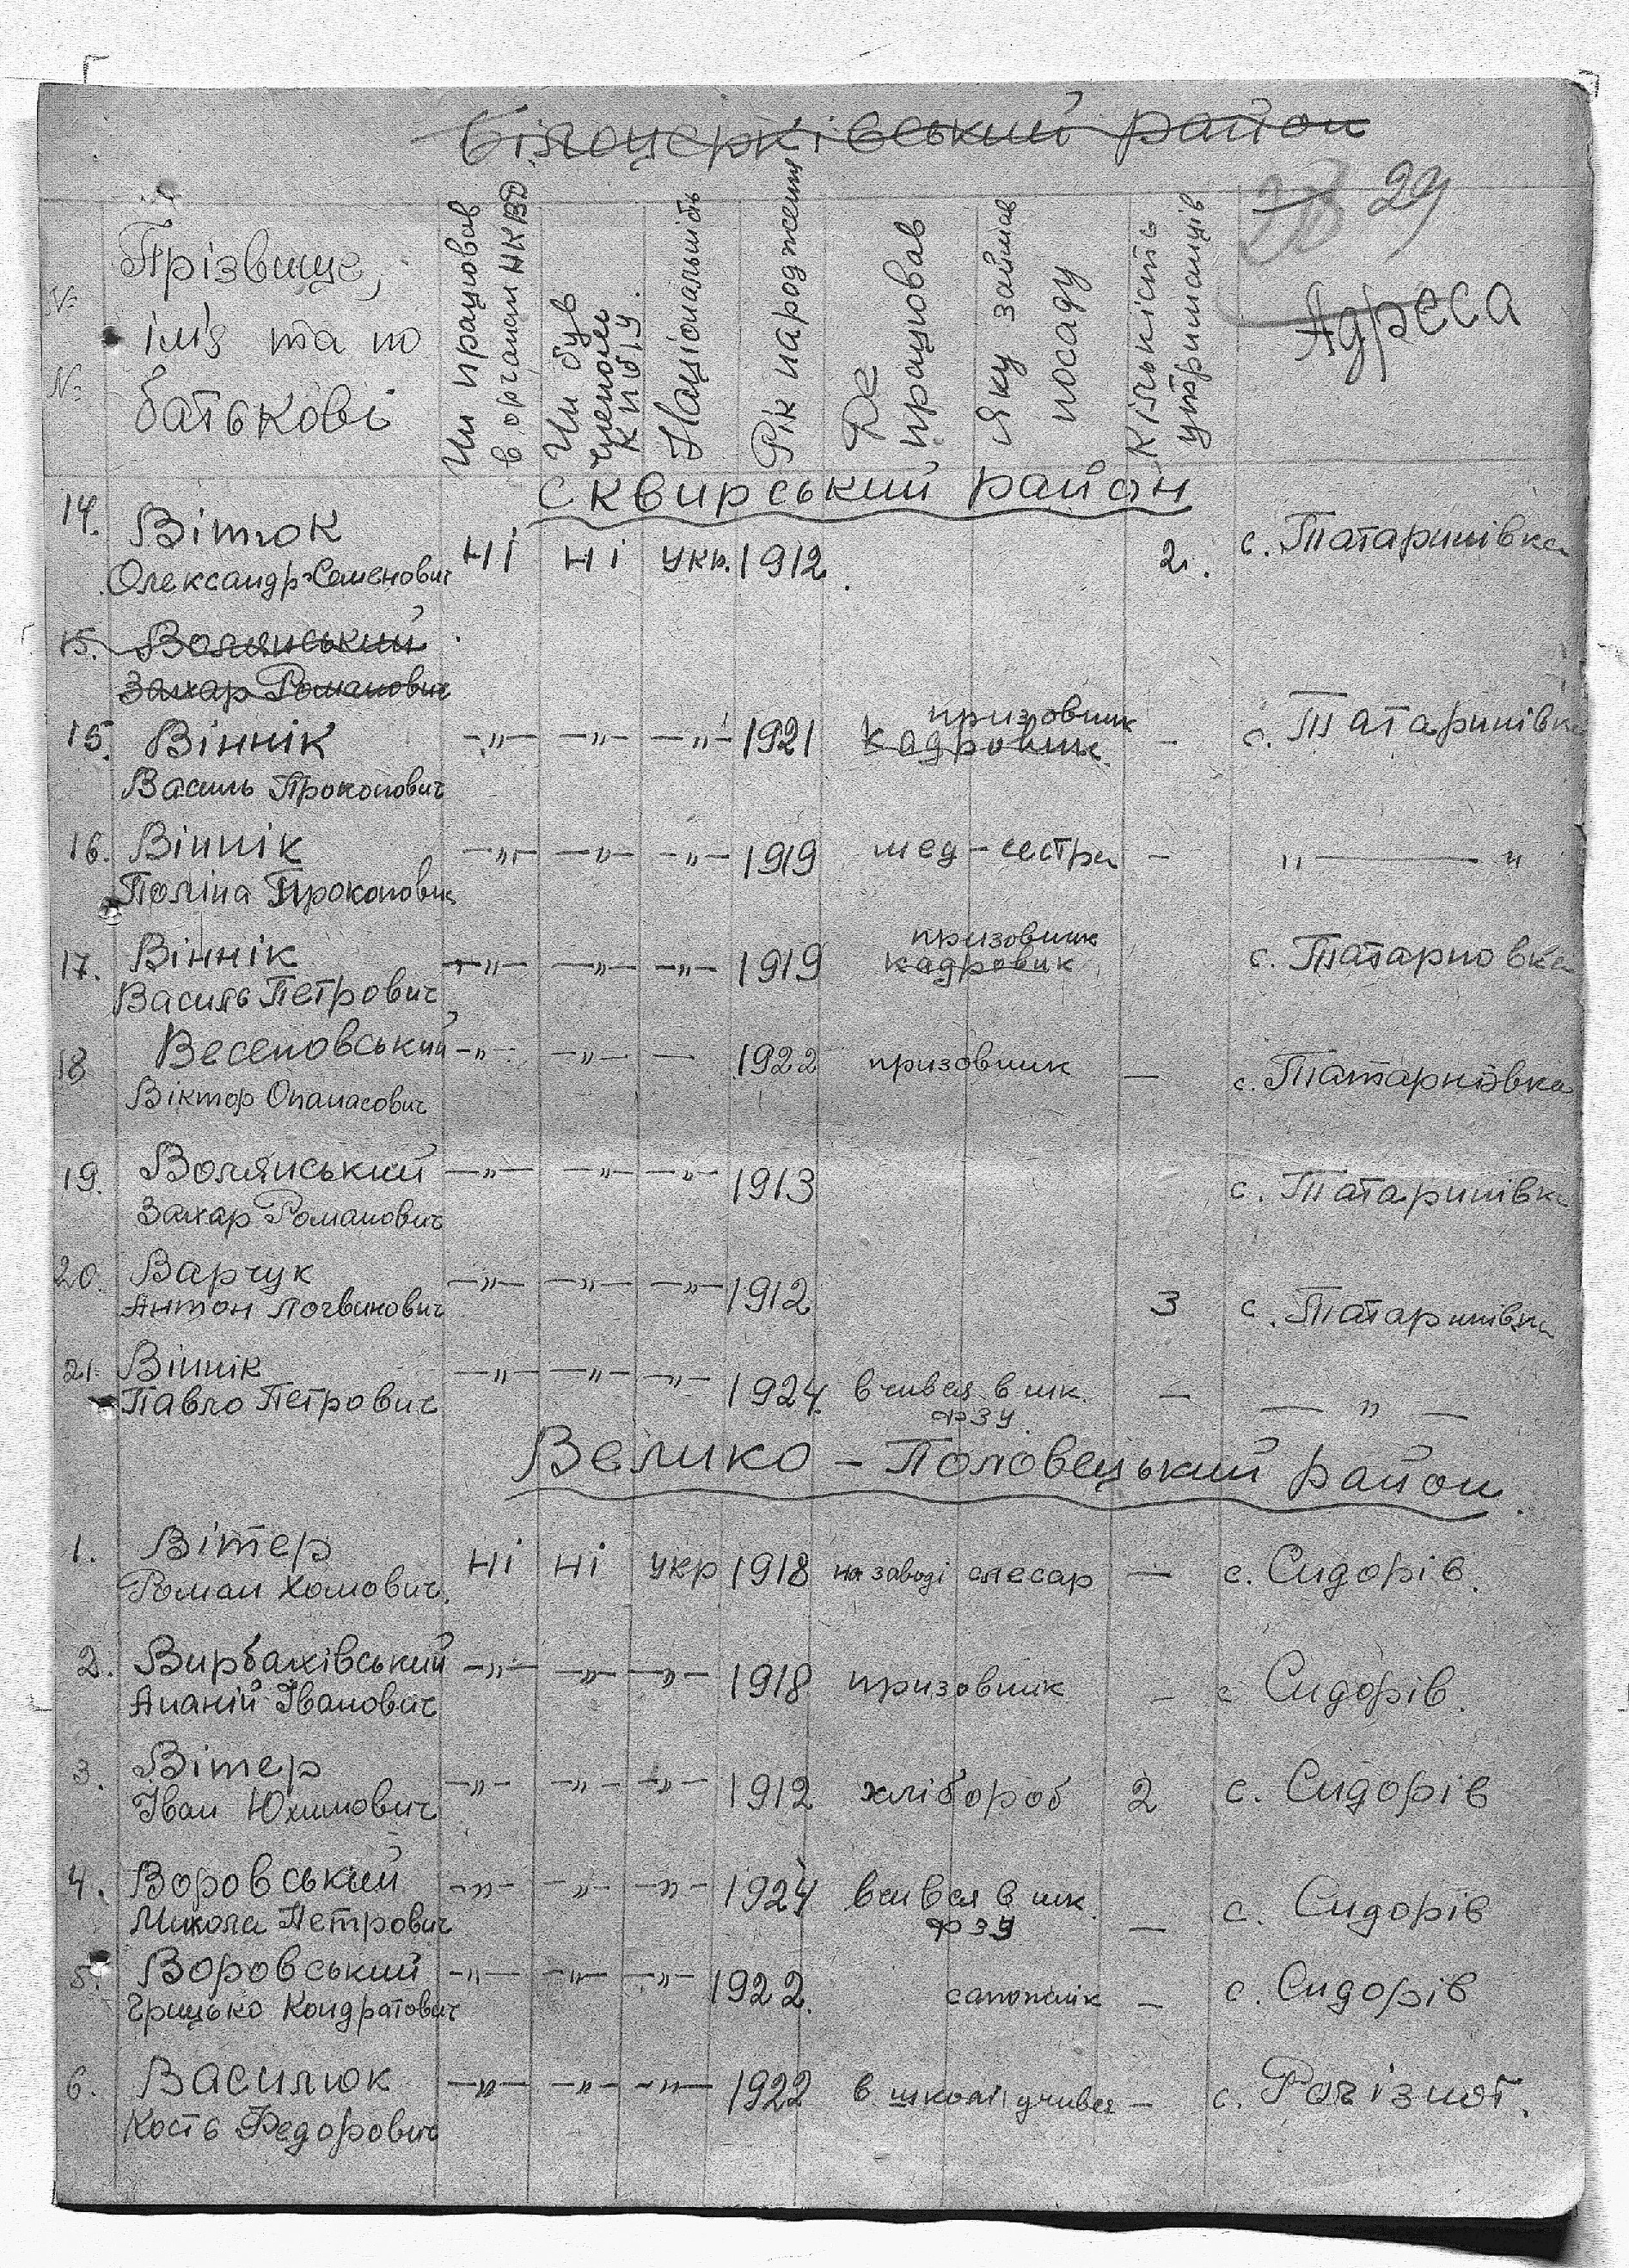 Білоцерківський район
28 29
№ №
Прізвище, ім'я та по батькові
Чи працював в органах НКВД
Чи був членом КПбУ.
Національність
Рік народження
Де працював
Яку займав посаду
Кількість утриманців
Адреса
Сквирський район
14. Вітюк ні ні укр. 1912. 2. с. Татаринівка
Олександр Семенович
15. Волянський
Захар Романович
призовник
15. Віннік -"- -"- -"- 1921 кадровик. - с. Татаринівка
Василь Прокопович
16. Віннік -"- -"- -"- 1919 мед-сестра - "——"
Поліна Прокоповна
призовник
17. Віннік -"- -"- -"- 1919 кадровик с. Татарновка
Василь Петрович
18 Весеновський -"- -"- — 1922 призовник — с. Татарновка
Віктор Опанасович
19. Волянський -"- -"- -"- 1913 с. Татаринівка
Захар Романович
20. Варчук -"- -"- -"- 1912 3 с. Татаринівка
Антон Логвинович
21. Віннік -"- -"- -"- 1924. вчився в шк. — — " —
Павло Петрович ФЗУ.
Велико-Половецький район.
1. Вітер ні ні укр 1918 на заводі слесар — с. Сидорів.
Роман Хомович.
2. Вирбахівський -"- -"- -"- 1918 призовник - с Сидорів.
Ананій Іванович
3. Вітер -"- -"- -"- 1912 хлібороб 2 с. Сидорів
Іван Юхимович
4. Воровський -"- -"- -"- 1924 вчився в шк. — с. Сидорів
Микола Петрович ФЗУ
5. Воровський -"- -"- -"- 1922. сапожник — с. Сидорів
Грицько Кондратович
6. Василюк -"- -"- -"- 1922 в школі учився - с.
Кость Федорович